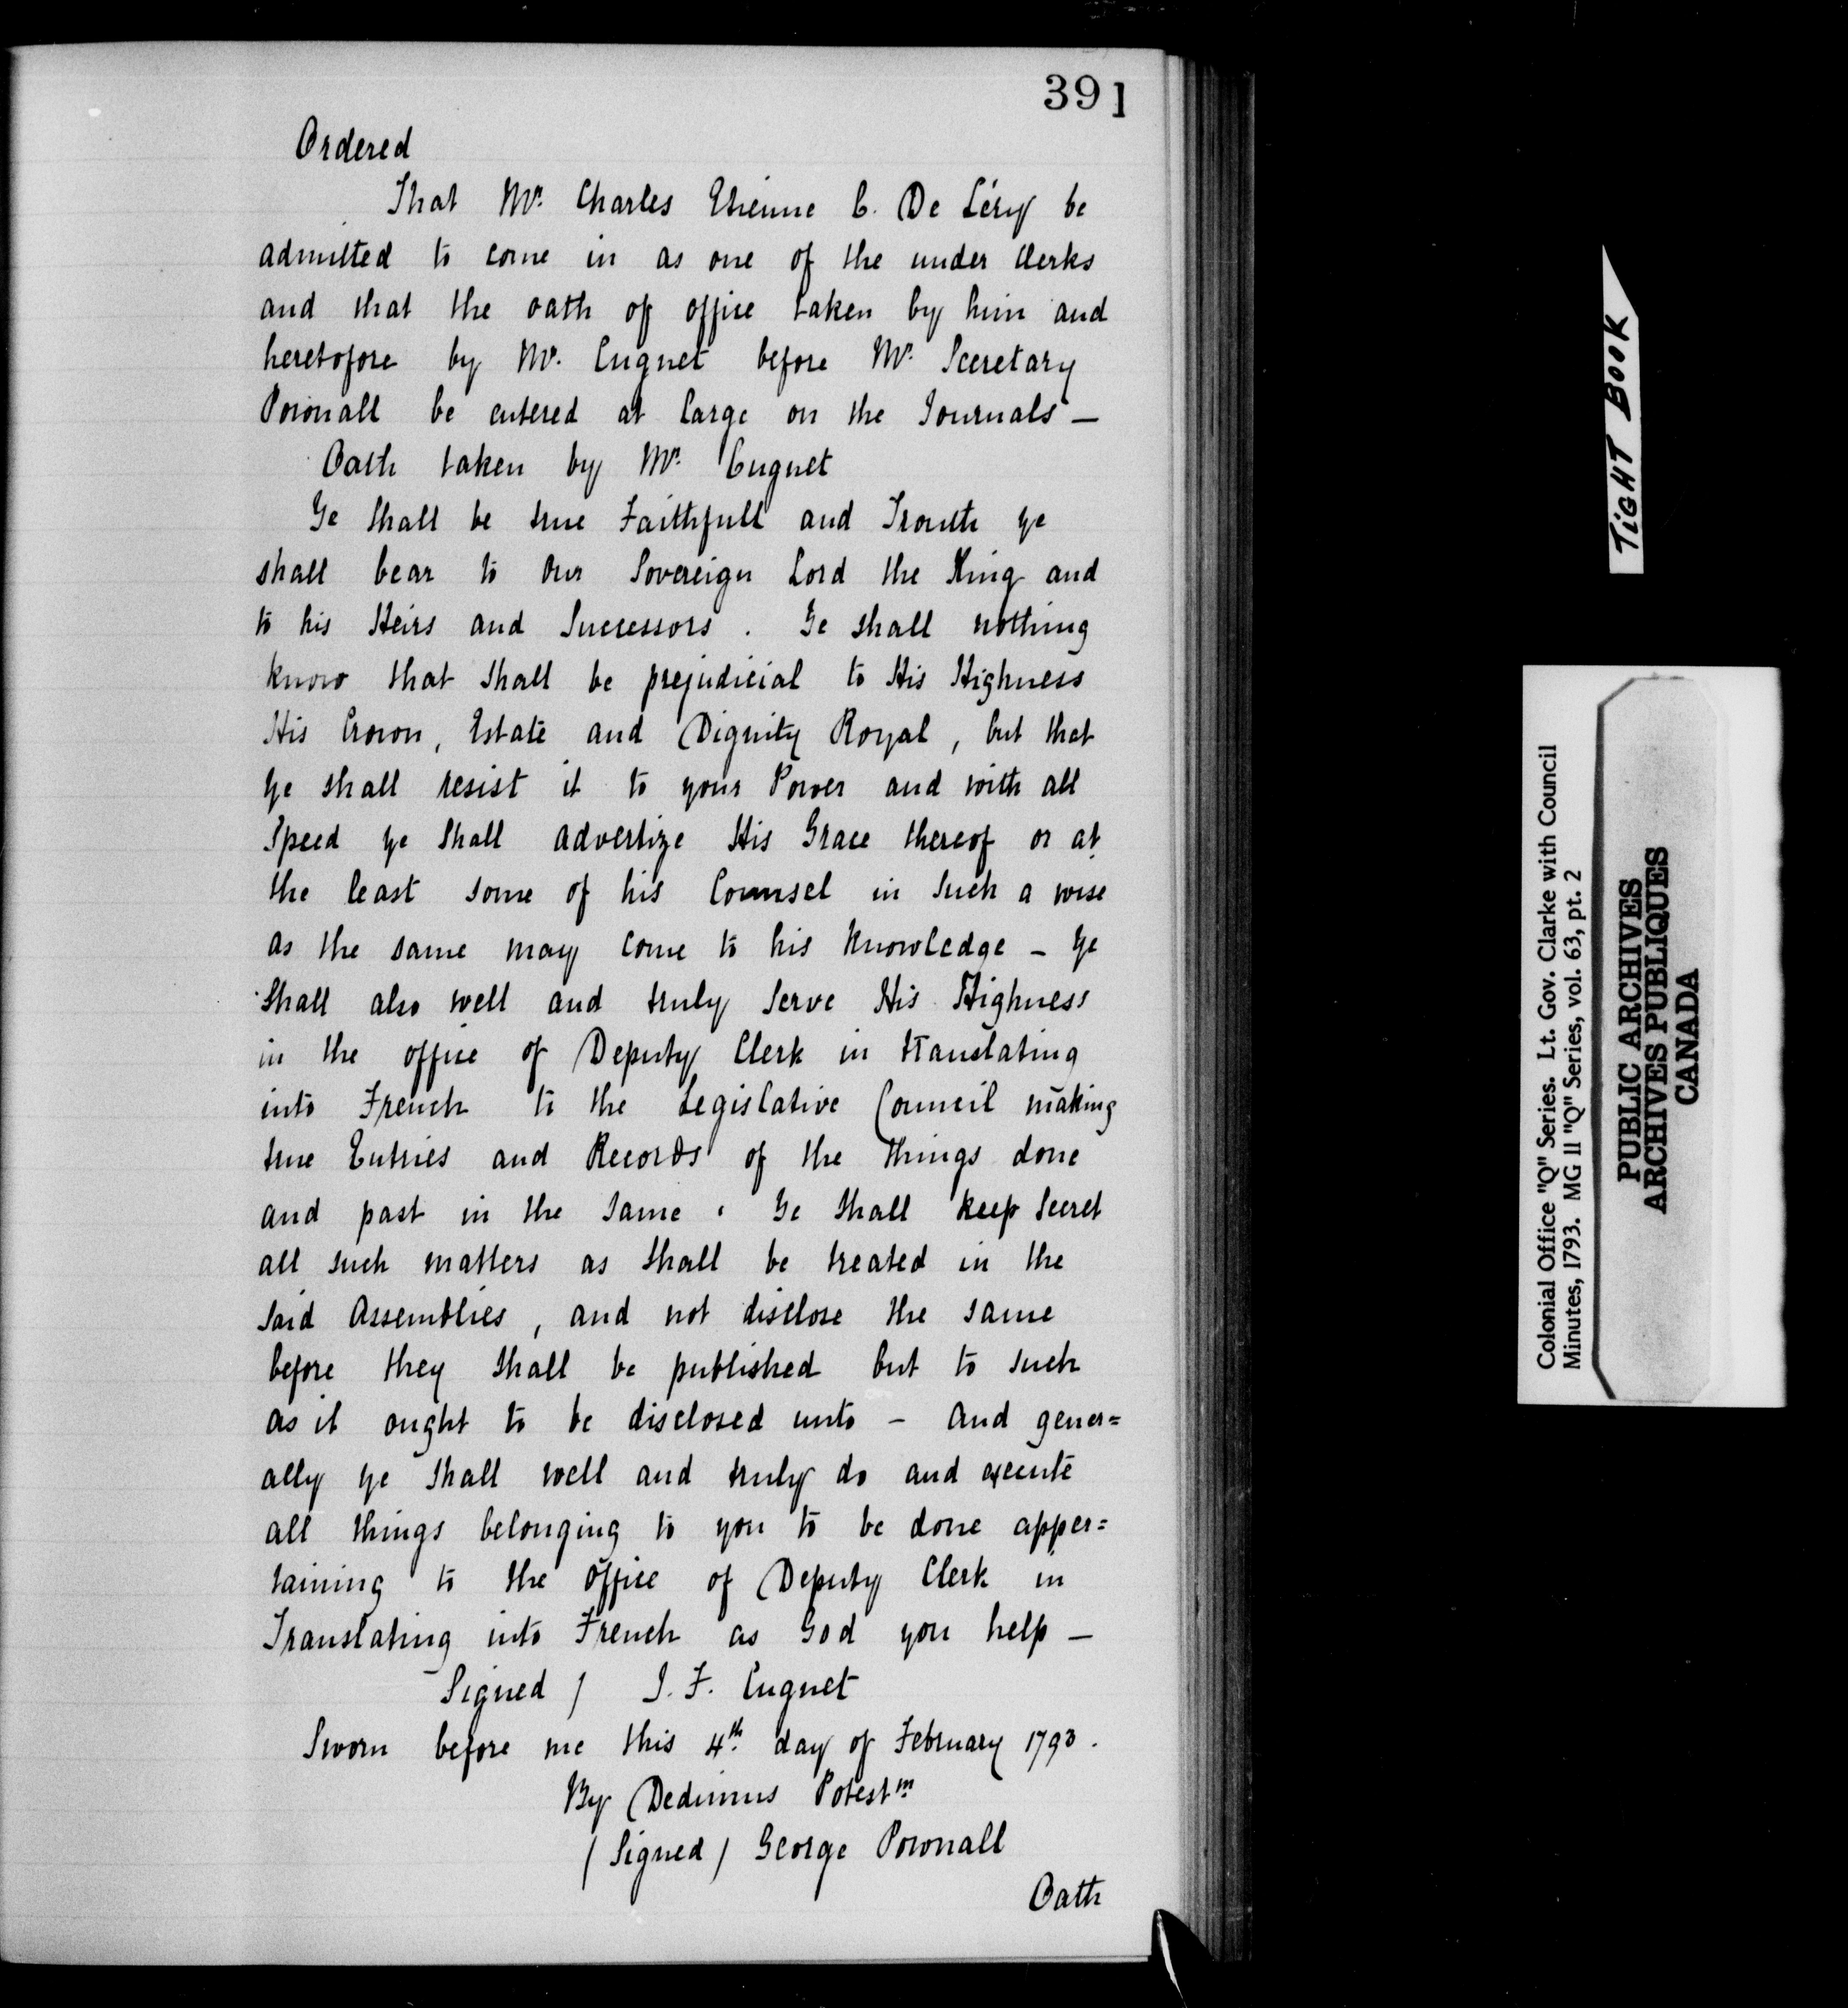 391
Ordered
That Mr. Charles Etienne C. De Léry be
admitted to come in as one of the under Clerks
and that the oath of office taken by him and
heretofore by Mr. Cugnet before Mr. Secretary
Pownall be entered at large on the Journals —
Oath taken by Mr. Cugnet
Ye shall be true Faithfull and Trouth ye
shall bear to Our Sovereign Lord the King and
to his Heirs and Successors . Ye shall nothing
know that shall be prejudicial to His Highness
His Crown, Estate and Dignity Royal, but that
ye shall resist it to your Power and with all
Speed ye shall advertize His Grace thereof or at
the least some of his Counsel in such a wise
as the same may come to his knowledge - ye
shall also well and truly serve His Highness
in the office of Deputy Clerk in translating
into French to the Legislative Council making
true Entries and Records of the things done
and past in the same . Ye shall keep secret
all such matters as shall be treated in the
said Assemblies, and not disclose the same
before they shall be published but to such
as it ought to be disclosed unto - and gener=
ally ye shall well and truly do and execute
all things belonging to you to be done apper=
taining to the office of Deputy Clerk in
Translating into French as God you help —
Signed / J. F. Cugnet
Sworn before me this 4th day of February 1793.
By Dedimus Potestm
(Signed) George Pownall
Oath
TIGHT BOOK
Colonial Office "Q" Series. Lt. Gov. Clarke with Council
Minutes, 1793. MG 11 "Q" Series, vol. 63, pt. 2
PUBLIC ARCHIVES
ARCHIVES PUBLIQUES
CANADA